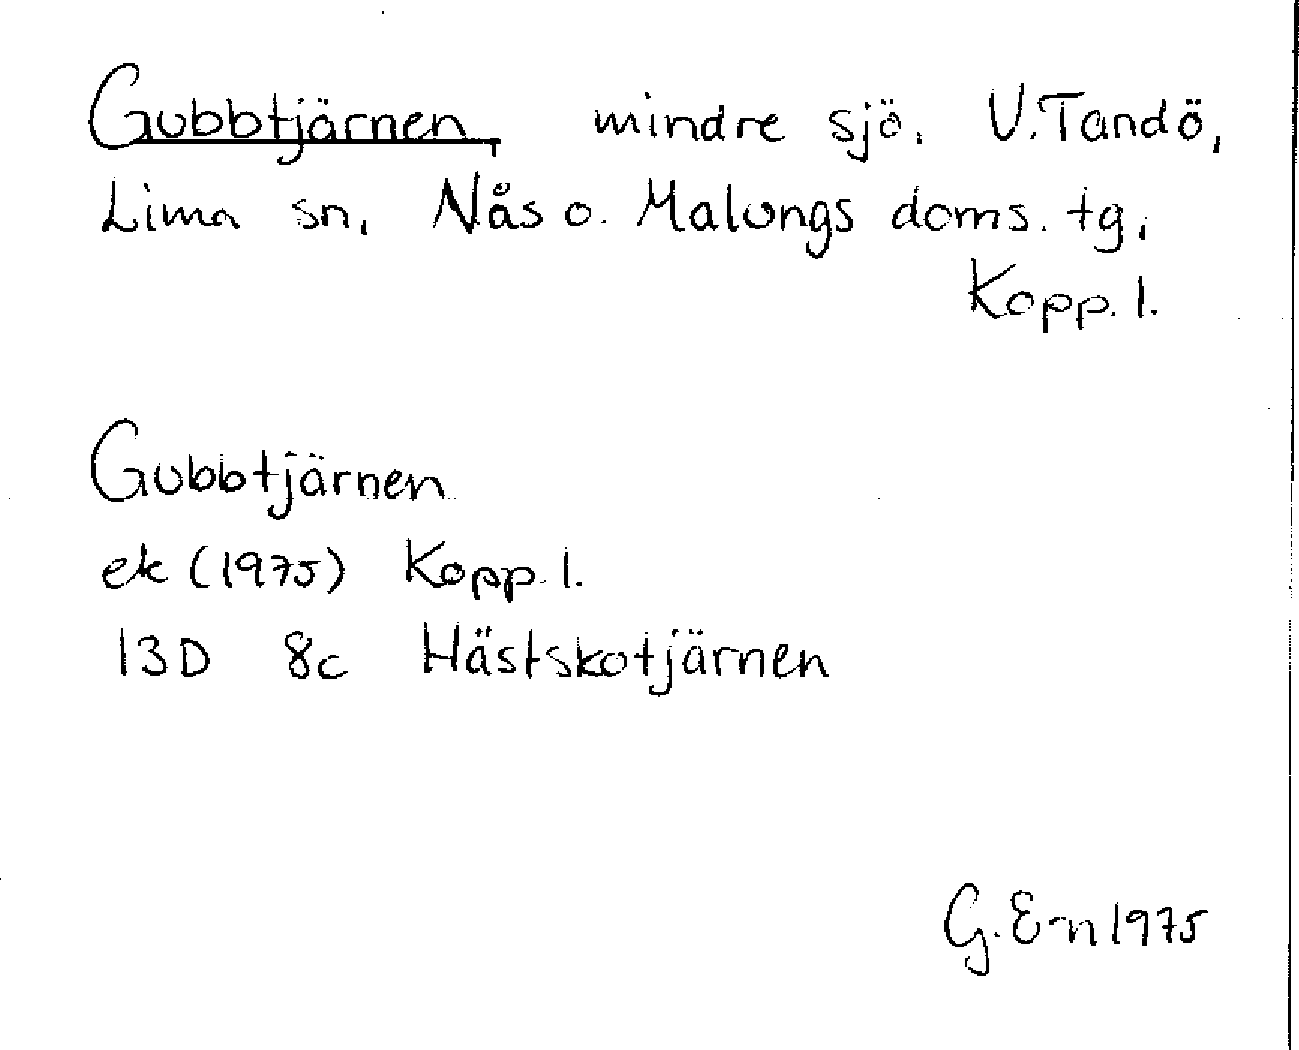 Gubbtjärnen, mindre sjö, V. Tandö,
Lima sn, Nås o. Malungs doms. tg,
Kopp. l.
Gubbtjärnen
ek (1975) Kopp. l.
13D 8c Hästskotjärnen
G. E-n 1975